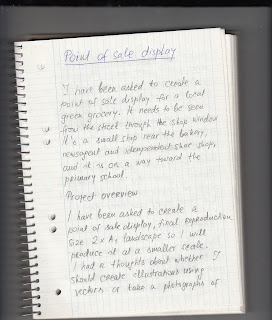 Point of sale display
I have been asked to create a
point of sale display for a local
green grocery. It needs to be seen
from the street through the shop window
It's a small shop near the bakery,
newsagent and independent shoe shop
and it is on a way toward the
primary school.
Project overview
I have been asked to create a
point of sale display, final reproduction
size 2 x A1 landscape so I will
produce it at a smaller scale.
I had a thoughts about whether I
should create illustrations using
vectors or take a photographs of